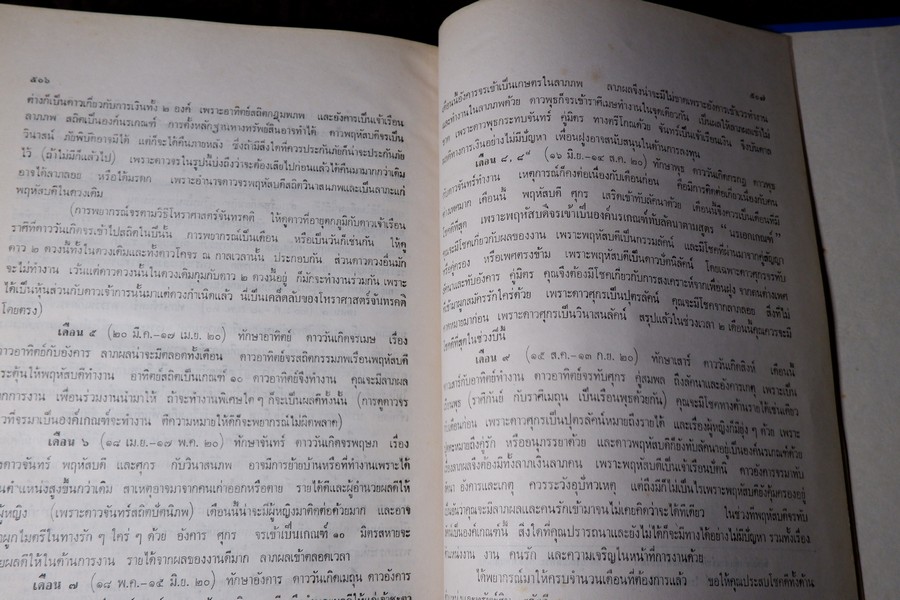 ๕๐๖
ต่างก็เป็นดาวเกี่ยวกับการเงินทั้ง ๒ องค์ เพราะอาทิตย์สถิตกฎุมพภพ และอังคารเป็นเจ้าเรือน
ลาภภพ สถิตเป็นองค์นระเกณฑ์ การตั้งหลักฐานทางทรัพย์สินอาจทำได้ ดาวพฤหัสบดีจรเป็น
วินาสน์ ภัยพิบัติอาจมีได้ แต่ก็จะได้คืนภายหลัง ซึ่งถ้ามีสิ่งใดที่ควรประกันภัยก็น่าจะประกันภัย
ไว้ (ถ้าไม่มีก็แล้วไป) เพราะดาวจรในรูปนี้บ่งถึงว่าจะต้องเสียไปก่อนแล้วได้คืนมามากกว่าเดิม
อาจได้ลาภลอย หรือได้มรดก เพราะอำนาจดาวจรพฤหัสบดีสถิตวินาสนภพและเป็นลาภะแก่
พฤหัสบดีในดวงเดิม
(การพยากรณ์จรตามวิธีโหราศาสตร์จันทรคติ ให้ดูดาวที่อายุตกภูมิกับดาวเจ้าเรือน
ราศีที่ดาววันเกิดจรเข้าไปสถิตในปีนั้น การพยากรณ์เป็นเดือน หรือเป็นวันก็เช่นกัน ให้ดู
ดาว ๒ ดวงนี้ทั้งในดวงเดิมและทั้งดาวโคจร ณ กาลเวลานั้น ประกอบกัน ส่วนดาวดวงอื่นมัก
จะไม่ทำงาน เว้นแต่ดาวดวงนั้นในดวงเดิมกุมกับดาว ๒ ดวงนี้อยู่ ก็มักจะทำงานร่วมกัน เพราะ
ได้เป็นหุ้นส่วนกับดาวเจ้าการนั้นมาแต่ดวงกำเนิดแล้ว นี่เป็นเคล็ดลับของโหราศาสตร์จันทรคติ
โดยตรง)
เดือน ๕ (๒๐ มี.ค.-๑๗ เม.ย. ๒๐) ทักษาอาทิตย์ ดาววันเกิดจรเมษ เรื่อง
ดาวอาทิตย์กับอังคาร ลาภผลน่าจะมีตลอดทั้งเดือน ดาวอาทิตย์จรสถิตกรรมภพเรือนพฤหัสบดี
ให้พฤหัสบดีทำงาน อาทิตย์สถิตเป็นเกณฑ์ ๑๐ ดาวอาทิตย์จึงทำงาน คุณจะมีลาภผล
การงาน เพื่อนร่วมงานนำมาให้ ถ้าจะทำงานพิเศษใด ๆ ก็จะเป็นผลดีทั้งนั้น (การดูดาวจร
ที่จรมาเป็นองค์เกณฑ์จะทำงาน ตีความหมายให้ดีก็จะพยากรณ์ไม่ผิดพลาด)
เดือน ๖ (๑๘ เม.ย.-๑๗ พ.ค. ๒๐) ทักษาจันทร์ ดาววันเกิดจรพฤษภ เรื่อง
ดาวจันทร์ พฤหัสบดี และศุกร์ กับวินาสนภพ อาจมีการย้ายบ้านหรือที่ทำงานเพราะได้
ตำแหน่งสูงขึ้นกว่าเดิม สาเหตุอาจมาจากคนเก่าออกหรือตาย รายได้ดีและผู้อำนวยผลดีให้
ผู้หญิง (เพราะดาวจันทร์สถิตปัตนิภพ) เดือนนี้น่าจะมีผู้หญิงมาติดต่อด้วยมาก และอาจ
ผูกไมตรีในทางรัก ๆ ใคร่ ๆ ด้วย อังคาร ศุกร์ จรเข้าเป็นเกณฑ์ ๑๐ มิตรสหายจะ
ผลดีให้ในด้านการงาน รายได้จากผลของงานดีมาก ลาภผลเข้าตลอดเวลา
เดือน ๗ (๑๘ พ.ค.-๑๕ มิ.ย. ๒๐) ทักษาอังคาร ดาววันเกิดเมถุน ดาวอังคาร
๕๐๗
เดือนนี้อังคารจรเข้าเป็นเกษตรในลาภภพ ลาภผลจึงน่าจะมีไม่ขาดเพราะอังคารเข้าทำงาน
และทำงานในลาภภพด้วย ดาวพุธก็จรเข้าราศีเมษทำงานในจุดเดียวกัน เป็นผลให้ลาภผลเข้าไม่
ขาด เพราะดาวพุธกระทบจันทร์ คู่มิตร ทางตรีโกณด้วย จันทร์เป็นเจ้าเรือนเงิน จึงบันดาล
ผลดีทางการเงินอย่างไม่มีปัญหา เพื่อนฝูงอาจสนับสนุนในด้านการลงทุน
เดือน ๘, ๘๘ (๑๖ มิ.ย.-๑๔ ส.ค. ๒๐) ทักษาพุธ ดาววันเกิดกรกฎ ดาวพุธ
กับดาวจันทร์ทำงาน เหตุการณ์ก็คงต่อเนื่องกับเดือนก่อน คือมีการติดต่อเกี่ยวเนื่องกับคน
ต่างเพศมาก เดือนนี้ พฤหัสบดี ศุกร์ เสริดเข้าทับลัคนาด้วย เดือนนี้จึงควรเป็นเดือนที่มี
โชคดีที่สุด เพราะพฤหัสบดีจรเข้าเป็นองค์นระเกณฑ์ทับลัคนาตามสูตร “นระเอกเกณฑ์”
คุณจะมีโชคเกี่ยวกับผลของงาน เพราะพฤหัสบดีเป็นกรรมลัคน์ และมีโชคที่ผ่านมาจากคู่สัญญา
หรือคู่ครอง หรือเพศตรงข้าม เพราะพฤหัสบดีเป็นดาวปัตนิลัคน์ โดยเฉพาะดาวศุกร์จรทับ
ลัคนาและทับอังคาร คู่มิตร คุณจึงต้องมีโชคเกี่ยวกับการสงเคราะห์จากเพื่อนฝูง จากคนต่างเพศ
รักใคร่ด้วย เพราะดาวศุกร์เป็นปุตรลัคน์ คุณจะมีโชคจากลาภลอย สิ่งที่ไม่
มาก่อน เพราะดาวศุกร์เป็นวินาสนลัคน์ สรุปแล้วในช่วงเวลา ๒ เดือนนี้คุณควรจะมี
โชคดีที่สุดในช่วงปีนี้
เดือน ๙ (๑๕ ส.ค.-๑๓ ก.ย. ๒๐) ทักษาเสาร์ ดาววันเกิดสิงห์ เดือนนี้
ดาวเสาร์กับอาทิตย์ทำงาน ดาวอาทิตย์จรทับศุกร์ คู่สมพล ถึงลัคนาและอังคารเกตุ เพราะเป็น
เรือนพุธ (ราศีกันย์ กับราศีเมถุน เป็นเรือนพุธด้วยกัน) คุณจะมีโชคทางด้านรายได้เช่นเดียว
กับเดือนก่อน เพราะดาวศุกร์เป็นปุตรลัคน์หมายถึงรายได้ และเรื่องผู้หญิงก็มียุ่ง ๆ ด้วย เพราะ
ปุตตะหมายถึงคู่รัก หรืออนุภรรยาด้วย และดาวพฤหัสบดีก็ยังทับลัคนาอยู่เป็นองค์นระเกณฑ์ด้วย
เรื่องลาภผลจึงต้องมีทั้งลาภเงินลาภคน เพราะพฤหัสบดีเป็นเจ้าเรือนปัตนิ ดาวอังคารจรมาทับ
ลัคนา อังคารและเกตุ ควรระวังอุบัติเหตุ แต่ถึงมีก็ไม่เป็นไรเพราะพฤหัสบดียังคุ้มครองอยู่
คุณจะมีลาภผลและคนรักเข้ามาจนไม่เคยคิดว่าจะได้ทีเดียว ในช่วงที่พฤหัสบดีจรทับ
เป็นองค์เกณฑ์นี้ สิ่งใดที่คุณปรารถนาและยังไม่ได้ก็จะมีทางได้อย่างไม่มีปัญหา รวมทั้งเรื่อง
ตำแหน่งงาน งาน คนรัก และความเจริญในหน้าที่การงานด้วย
ได้พยากรณ์มาให้ครบจำนวนเดือนที่ต้องการแล้ว ขอให้คุณประสบโชคดีทั้งด้าน